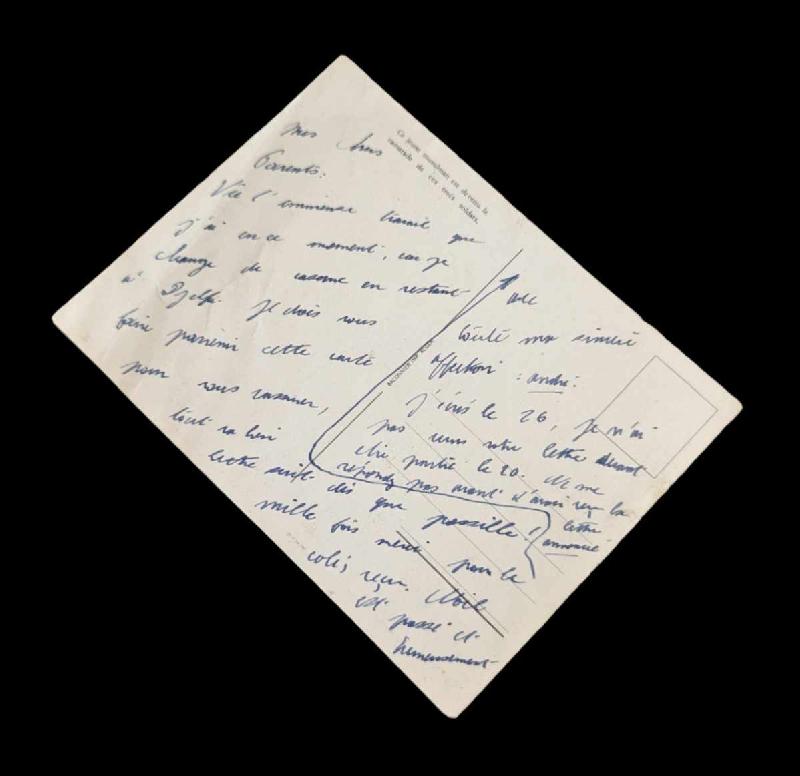 Ce jeune musulman est devenu le
camarade de ces trois soldats.
Mes chers
Parents.
Vu l'immense travail que
j'ai en ce moment, car je
change de caserne en restant
à Djelfa. Je dois vous
faire parvenir cette carte
pour vous rassurer,
tout va bien
lettre suit dès que possible!
mille fois merci pour le
colis reçu. Noël
est passé et
heureusement
avec
toute ma sincère
affection: André.
J'écris le 26, je n'ai
pas reçu votre lettre devant
être partie le 20. Ne me
répondez pas avant d'avoir reçu la
lettre
annoncée